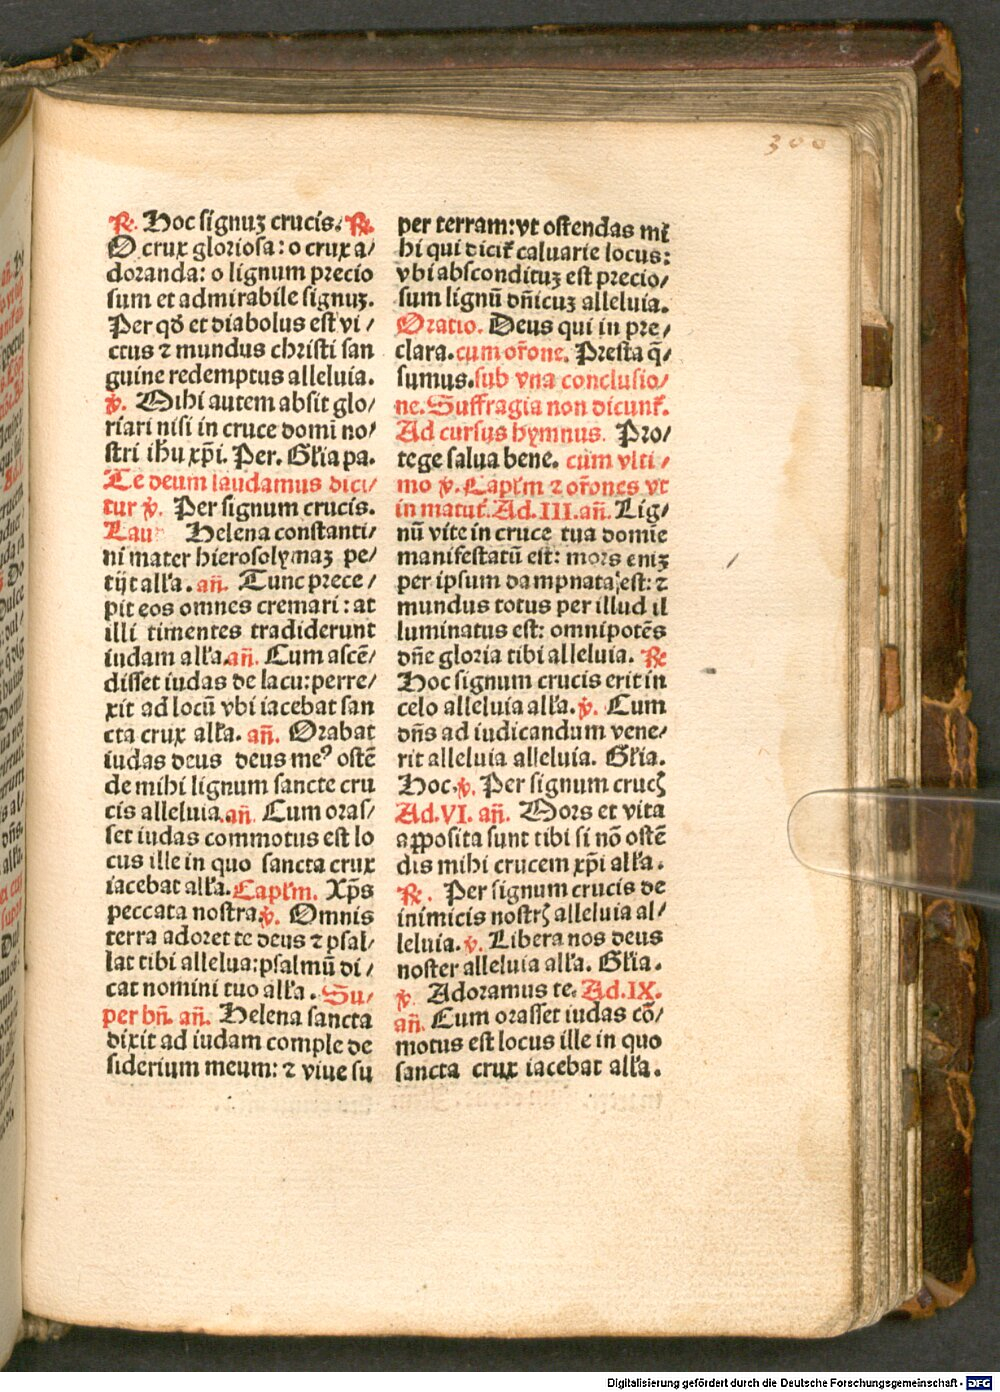 300
℟. Hoc signuꝫ crucis. ℟.
O crux gloriosa: o crux a/
doranda: o lignum precio
sum et admirabile signuꝫ.
Per qđ et diabolus est vi/
ctus ⁊ mundus christi san
guine redemptus alleluia.
℣. Mihi autem absit glo/
riari nisi in cruce domī no/
stri ihū xp̄i. Per. Gl̄ia pa.
Te deum laudamus dici/
tur ℣. Per signum crucis.
Lau Helena constanti/
ni mater hierosolymaꝫ pe/
tijt all̄a. an̄. Tunc prece/
pit eos omnes cremari: at
illi timentes tradiderunt
iudam all̄a. an̄. Cum ascē/
disset iudas de lacu: perre/
xit ad locū vbi iacebat san
cta crux all̄a. an̄. Orabat
iudas deus deus meꝰ ostē
de mihi lignum sancte cru
cis alleluia. an̄. Cum oras/
set iudas commotus est lo
cus ille in quo sancta crux
iacebat all̄a. Capl̄m. Xp̄s
peccata nostra. ℣. Omnis
terra adoret te deus ⁊ psal/
lat tibi allelua: psalmū di/
cat nomini tuo all̄a. Su/
per bn̄. an̄. Helena sancta
dixit ad iudam comple de
siderium meum: ⁊ viue su
per terram: vt ostendas mi
hi qui dicit᷑ caluarie locus:
vbi absconditūꝫ est precio/
sum lignū dn̄icuꝫ alleluia.
Oratio. Deus qui in pre/
clara. cum or̄one. Presta q̄/
sumus. sub vna conclusio/
ne. Suffragia non dicunt᷑.
Ad cursus hymnus. Pro/
tege salua bene. cum vlti/
mo ℣. Capl̄m ⁊ or̄ones vt
in matut᷑. Ad. III. an̄. Lig/
nū vite in cruce tua domīe
manifestatū est: mors eniꝫ
per ipsum dampnata est: ⁊
mundus totus per illud il
luminatus est: omnipotēs
dn̄e gloria tibi alleluia. ℟
Hoc signum crucis erit in
celo alleluia all̄a. ℣. Cum
dn̄s ad iudicandum vene/
rit alleluia alleluia. Gl̄ia.
Hoc. ℣. Per signum crucꝭ
Ad. VI. an̄. Mors et vita
apposita sunt tibi si nō ostē
dis mihi crucem xp̄i all̄a.
℟. Per signum crucis de
inimicis nostrꝭ alleluia al/
leluia. ℣. Libera nos deus
noster alleluia all̄a. Gl̄ia.
℣. Adoramus te. Ad. IX.
an̄. Cum orasset iudas cō/
motus est locus ille in quo
sancta crux iacebat all̄a.
Digitalisierung gefördert durch die Deutsche Forschungsgemeinschaft - DFG